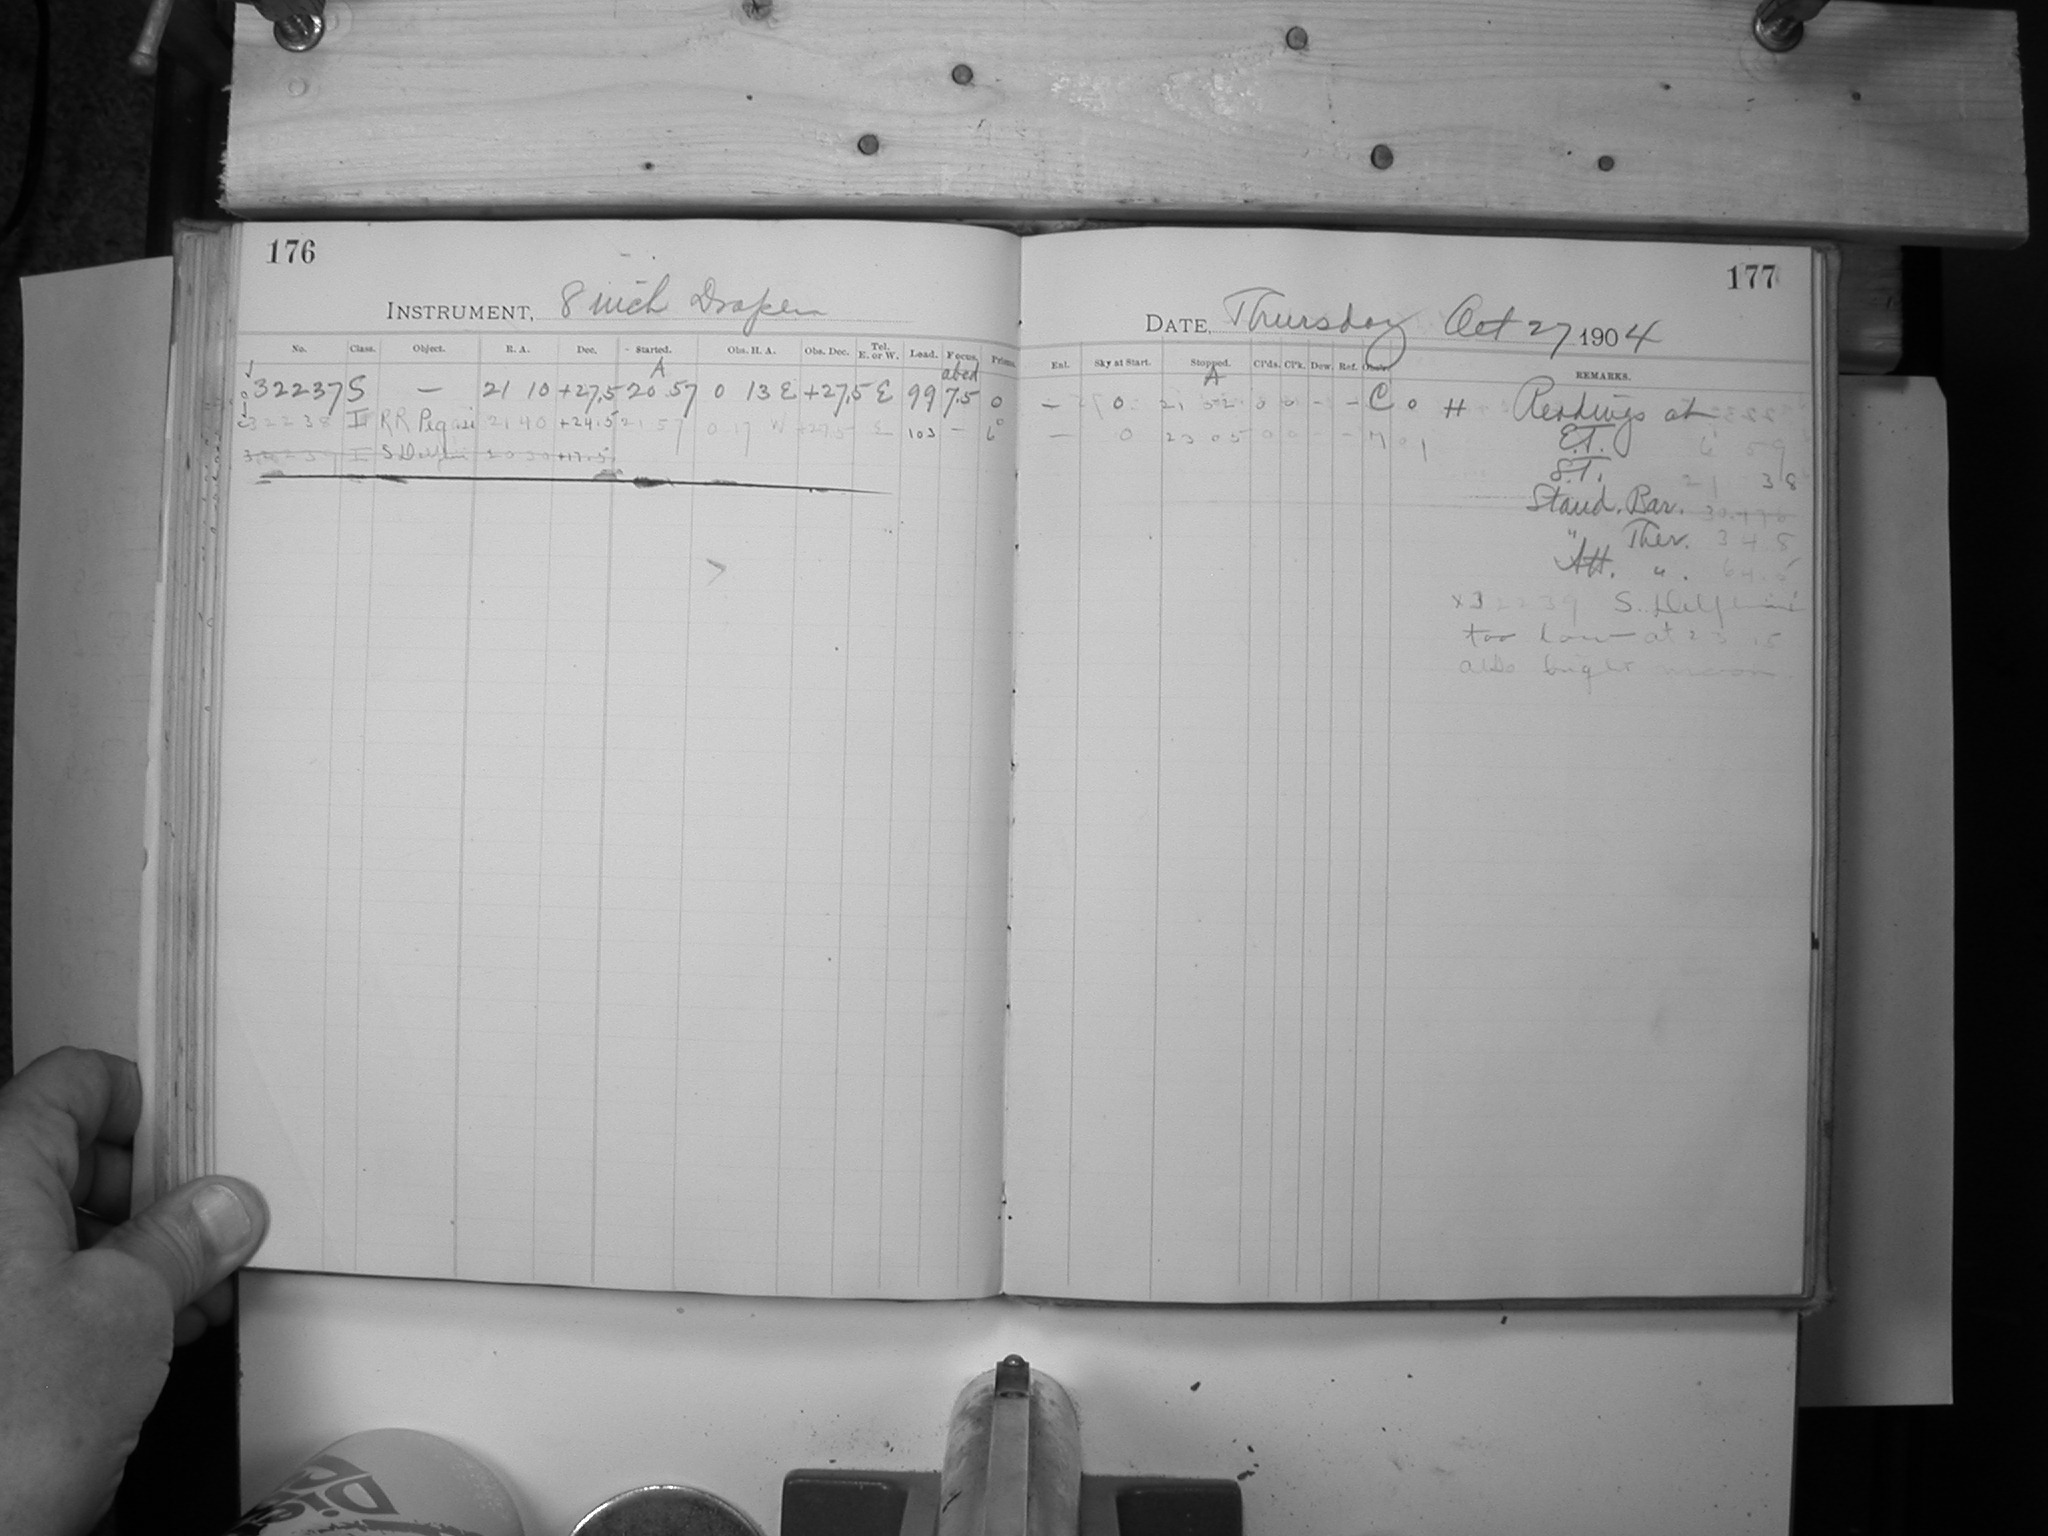 176
INSTRUMENT, 8 inch Draper
No. Class. Object. R. A. Dec. Started. Obs. H. A. Obs. Dec. Tel. E. or W. Load. Focus. Prisms.
A abcd
32237 S — 21 10 +27.5 20 57 0 13 E +27.5 E 99 7.5 0
32238 I RR Pegasi 21 40 +24.5 21 57 0 17 W +27.5 E 103 —
32239 I S Delphi 20 30 +17.5
177
DATE, Thursday Oct 27 1904
Ent. Sky at Start. Stopped. Cl'ds. Cl'k. Dew. Ref. Obs'r. REMARKS.
A
— 0 21 52 0 0 - - C 0 H Readings at
— 0 23 05 0 0 - - M 0 1 E.T. 6 59
S.T. 21 38
Stand. Bar. 30.476
" Ther. 34.8
Att. ". 64.5
x 32239 S. Delphini
too low at 23 15
also bright moon
Die